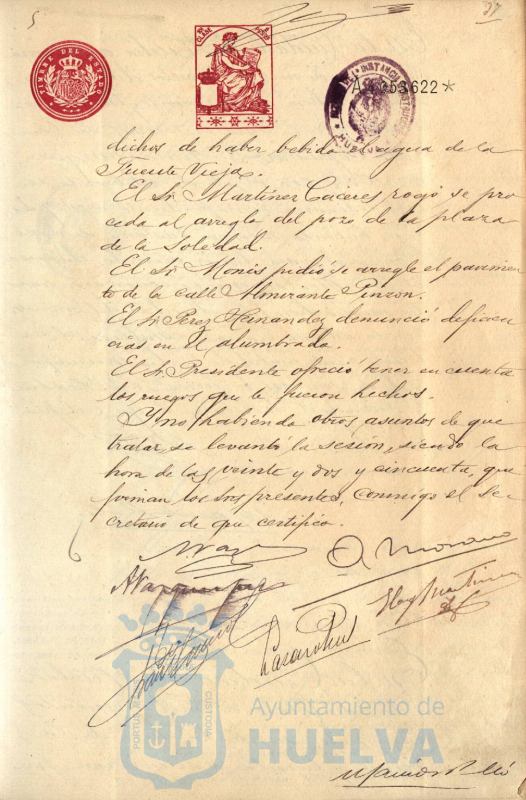 5
37
TIMBRE DEL ESTADO
CLASE
PESETA
A 253622 *
INSTANCIA
HUELVA
dichos de haber bebido agua de la
Fuente Vieja.
El Sr. Martínez Cáceres rogó se pro
ceda al arreglo del pozo de la plaza
de la Soledad.
El Sr. Monís pidió se arregle el pavimen
to de la calle Almirante Pinzon.
El Sr. Pérez Hernandez denunció deficien
cias en el alumbrado.
El Sr. Presidente ofreció tener en cuenta
los ruegos que le fueron hechos.
Y no habiendo otros asuntos de que
tratar, se levantó la sesión, siendo la
hora de las veinte y dos y cincuenta, que
firman los Sres presentes, conmigo el Se
cretario de que certifico.
A. Vazquez
O. Moreno
Eloy Martinez
Lazaro Rus
PORTUS
CUSTODIA
Ayuntamiento de
HUELVA